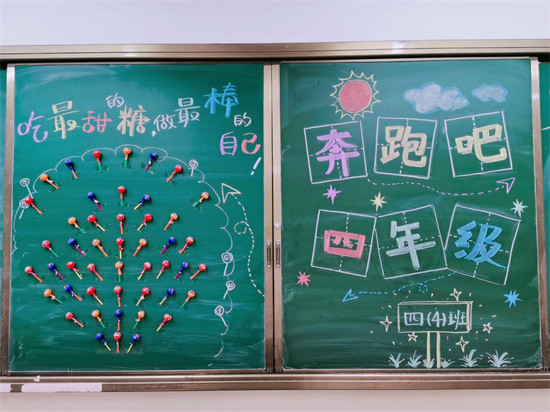 吃最甜的糖,做最棒的自己!
奔跑吧
四年级
四(4)班